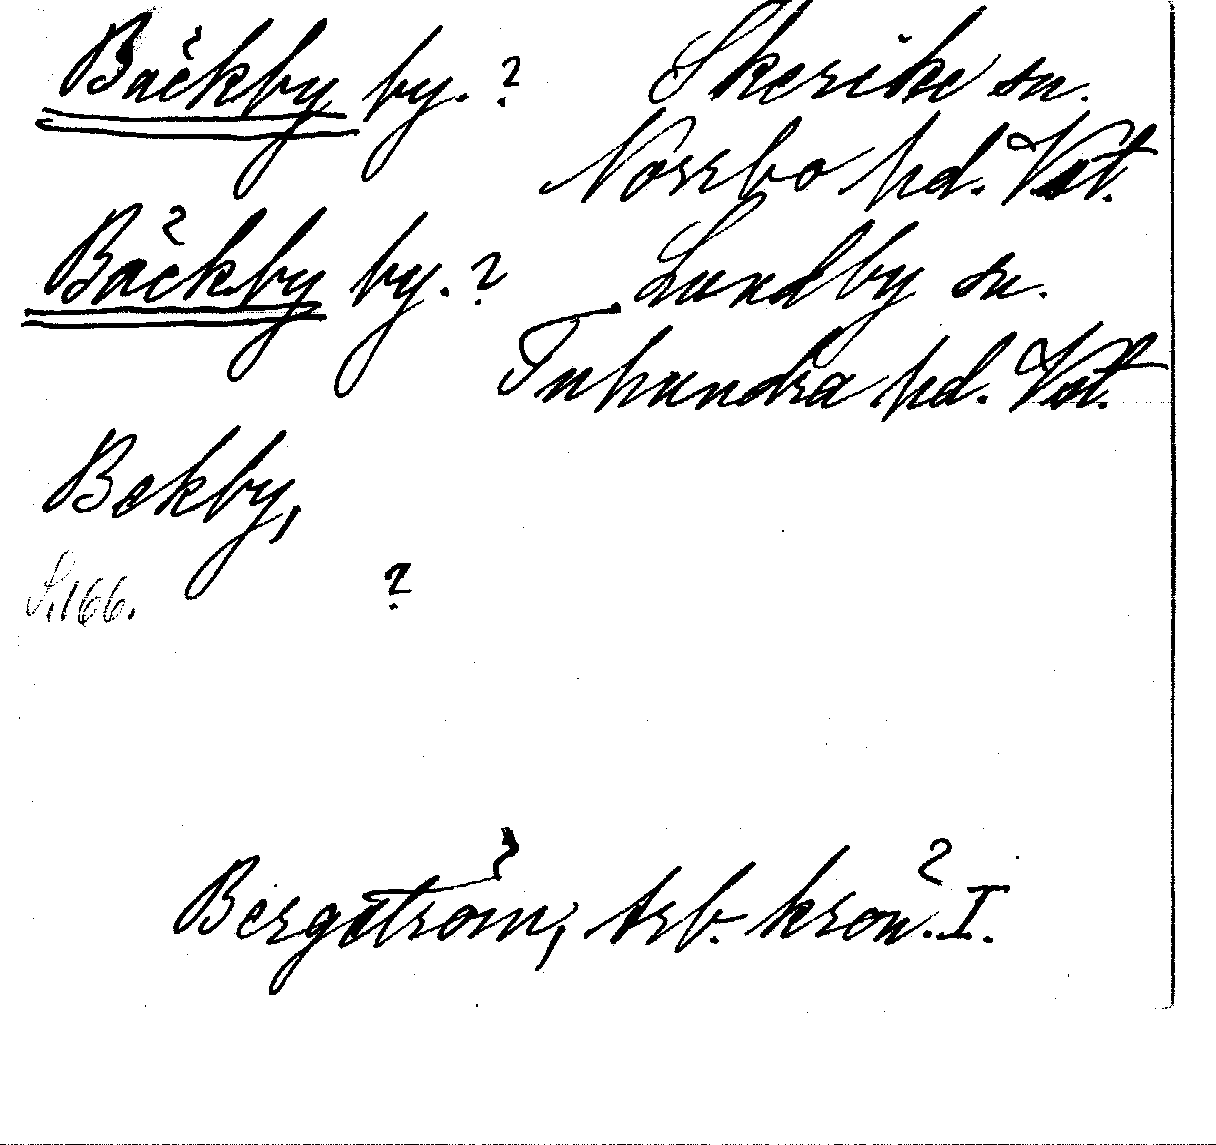 Bäckby by. ? Skerike sn.
Norrbo hd. Vst.
Bäckby by. ? Lundby sn.
Tuhundra hd. Vst.
Bekby,
S. 166. ?
Bergström, Arb. kron. I.